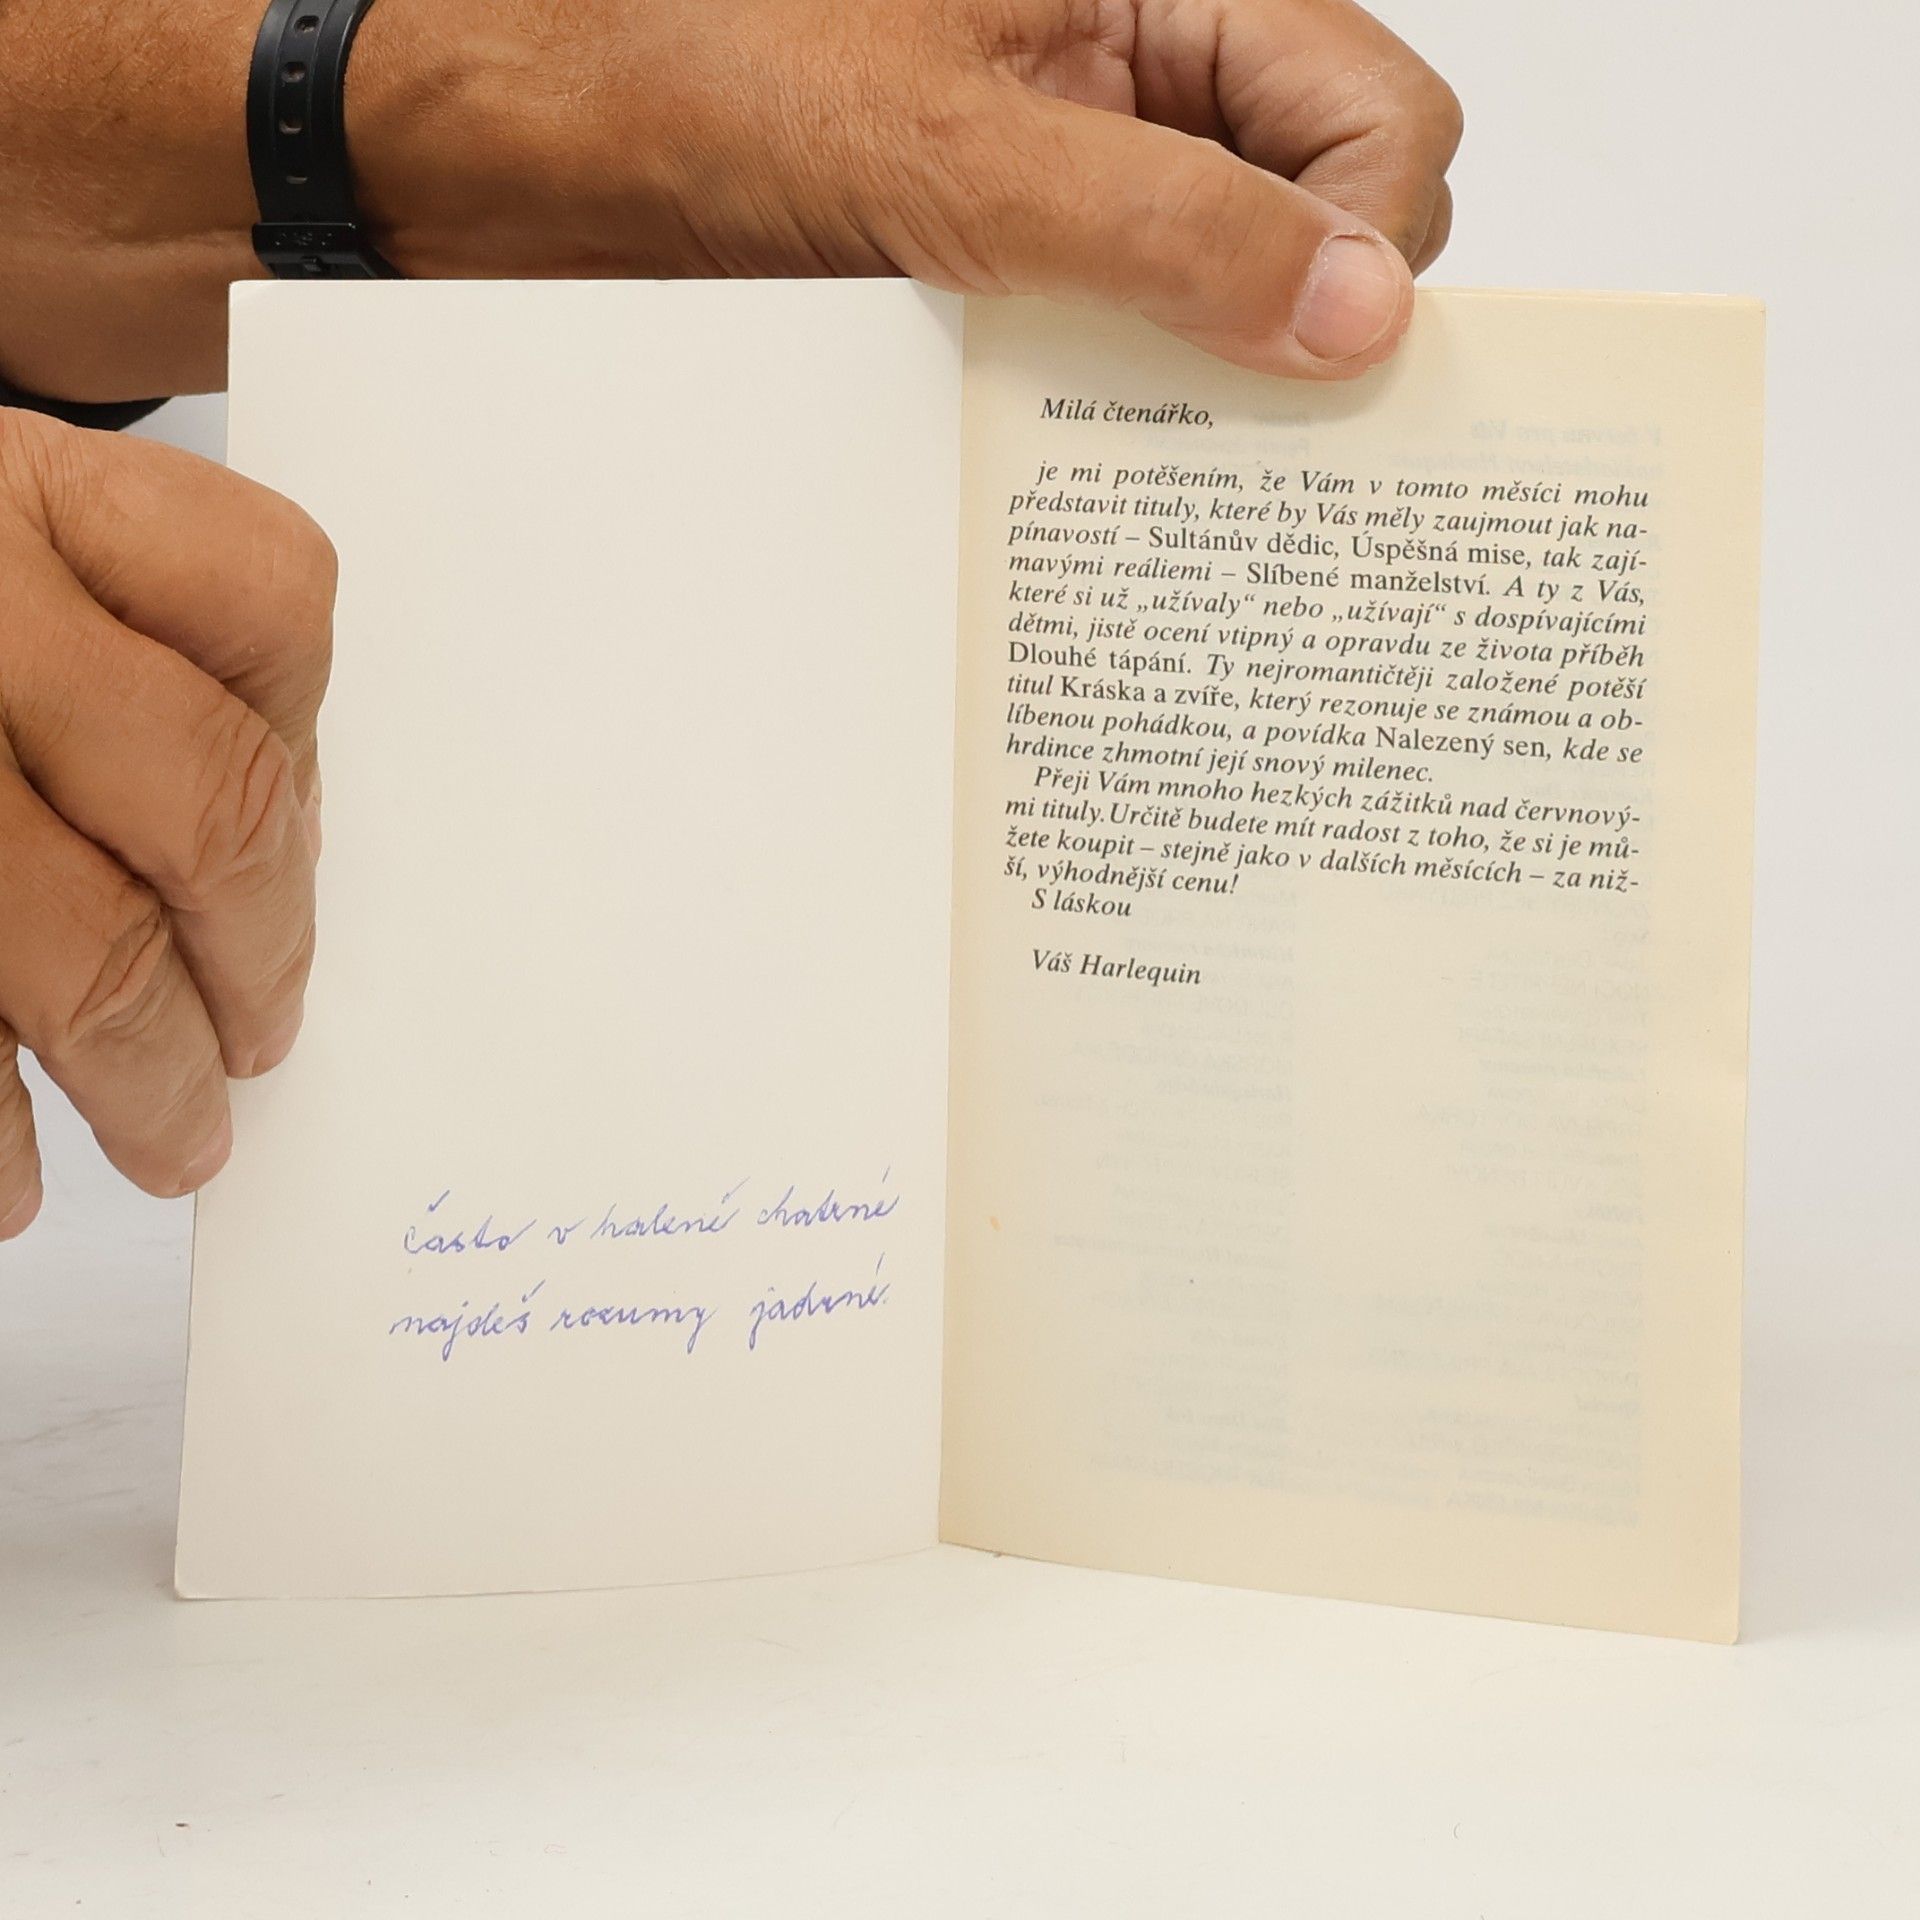 často v haleně chatrné
najdeš rozumy jadrné.
Milá čtenářko,
je mi potěšením, že Vám v tomto měsíci mohu
představit tituly, které by Vás měly zaujmout jak na-
pínavostí – Sultánův dědic, Úspěšná mise, tak zají-
mavými reáliemi – Slíbené manželství. A ty z Vás,
které si už „užívaly“ nebo „užívají“ s dospívajícími
dětmi, jistě ocení vtipný a opravdu ze života příběh
Dlouhé tápání. Ty nejromantičtěji založené potěší
titul Kráska a zvíře, který rezonuje se známou a ob-
líbenou pohádkou, a povídka Nalezený sen, kde se
hrdince zhmotní její snový milenec.
Přeji Vám mnoho hezkých zážitků nad červnový-
mi tituly. Určitě budete mít radost z toho, že si je mů-
žete koupit – stejně jako v dalších měsících – za niž-
ší, výhodnější cenu!
S láskou
Váš Harlequin